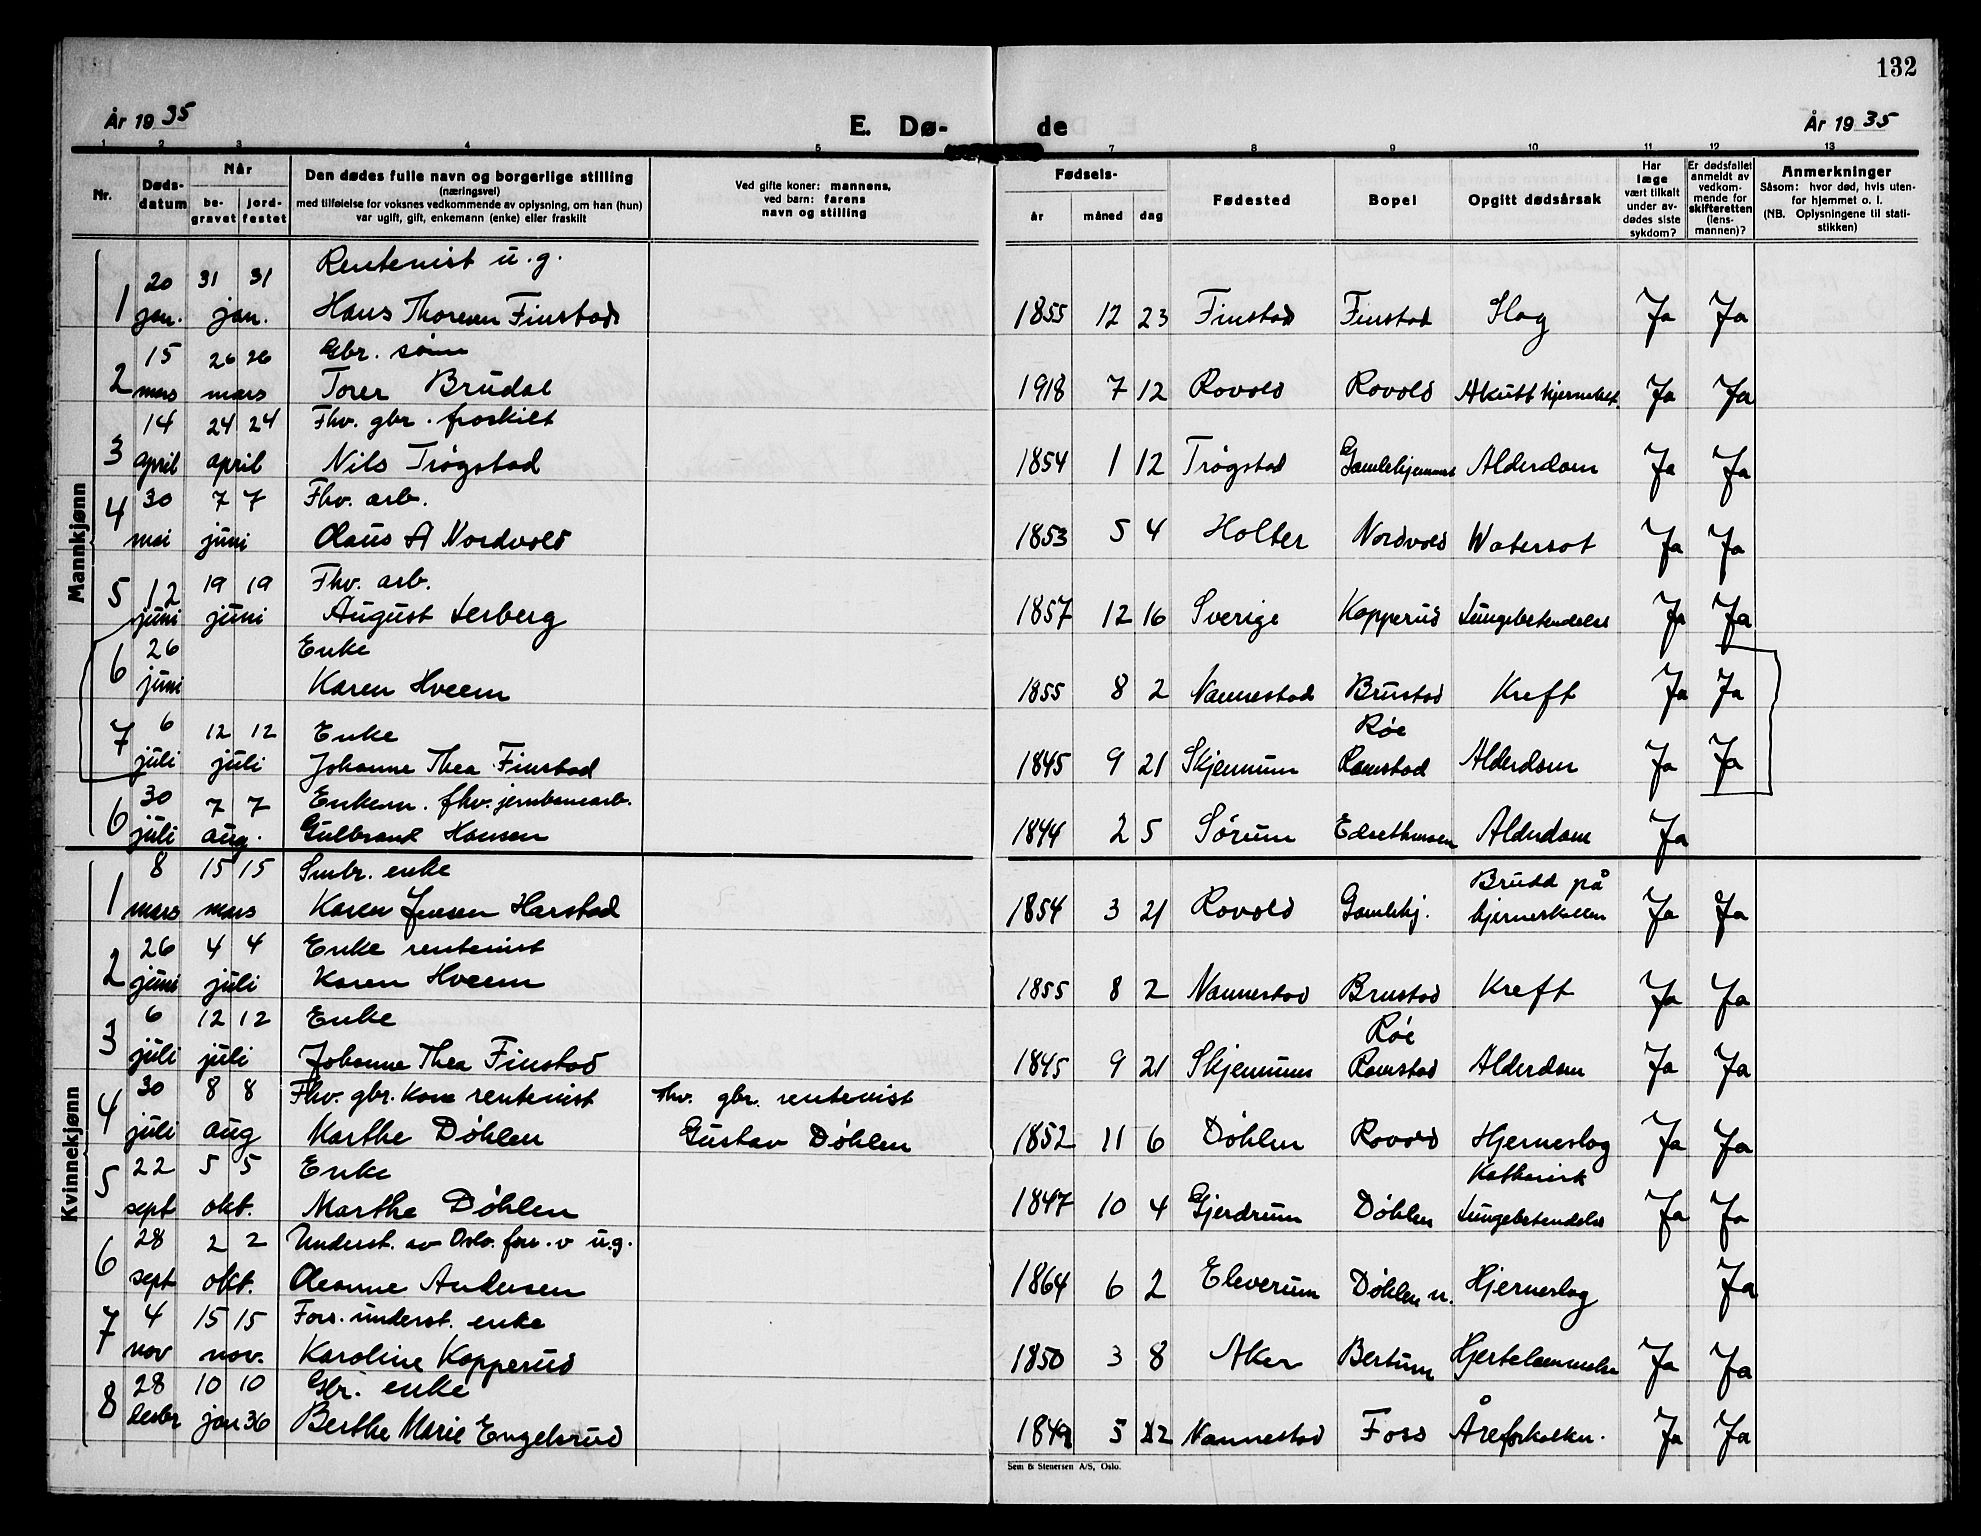 132
År 1935
E. Dø-
de
År 1935
1 2 3 4 5 7 8 9 10 11 12 13
Nr.
Døds-
datum
Når
be-
gravet
jord-
festet
Den dødes fulle navn og borgerlige stilling
(næringsvei)
med tilføielse for voksnes vedkommende av oplysning, om han (hun)
var ugift, gift, enkemann (enke) eller fraskilt
Ved gifte koner: mannens,
ved barn: farens
navn og stilling
Fødsels-
år måned dag
Fødested
Bopel
Opgitt dødsårsak
Har
læge
vært tilkalt
under av-
dødes siste
sykdom?
Er dødsfallet
anmeldt av
vedkom-
mende for
skifteretten
(lens-
mannen)?
Anmerkninger
Såsom: hvor død, hvis uten-
for hjemmet o. l.
(NB. Oplysningene til stati-
stikken)
Mannkjønn
20 31 31 Rentenist u.g.
1 jan. jan. Hans Thoresen Finstad 1855 12 23 Finstad Finstad Slag Ja Ja
15 26 26 Gbr. sønn
2 mars mars Torer Brudal 1918 7 12 Rovold Rovold Akutt Ja Ja
14 24 24 Fhv. gbr. fraskilt
3 april april Nils Trøgstad 1854 1 12 Trøgstad Gamlehjemmet Alderdom Ja Ja
30 7 7 Fhv. arb.
4 mai juni Olaus A Nordvold 1853 5 4 Holter Nordvold Watersot Ja Ja
12 19 19 Fhv. arb.
5 juni juni August Lerberg 1857 12 16 Sverige Kopperud Lungebetendelse Ja Ja
26 Enke
6 juni Karen Hveem 1855 8 2 Nannestad Brustad Kreft Ja Ja
6 12 12 Enke Røe
7 juli juli Johanne Thea Finstad 1845 9 21 Skjennum Ramstad Alderdom Ja Ja
30 7 7 Enkem. fhv. jernbanearb.
6 juli aug. Gulbrand Hansen 1844 2 5 Sørum Alderdom Ja
Kvinnekjønn
8 15 15 Smbr. enke Brudd på
1 mars mars Karen Jensen Harstad 1854 3 21 Rovold Gamlehj. hjerneskallen Ja Ja
26 4 4 Enke rentenist
2 juni juli Karen Hveem 1855 8 2 Nannestad Brustad Kreft Ja Ja
6 12 12 Enke Røe
3 juli juli Johanne Thea Finstad 1845 9 21 Skjennum Ramstad Alderdom Ja Ja
30 8 8 Fhv. gbr. kone rentenist fhv. gbr. rentenist
4 juli aug Marthe Døhlen Gustav Døhlen 1852 11 6 Døhlen Rovold Hjerneslag Ja Ja
22 5 5 Enke Katharisk
5 sept okt. Marthe Døhlen 1847 10 4 Gjerdrum Døhlen Lungebetendelse Ja Ja
28 2 2 Underst. av Oslo. fors. v u.g.
6 sept okt. Oleanne Andersen 1864 6 2 Elverum Døhlen n. Hjerneslag Ja
4 15 15 Fors. underst. enke
7 nov nov. Karoline Kopperud 1850 3 8 Aker Bertum Hjertelammelse Ja Ja
28 10 10 Gbr. enke
8 desbr jan 36 Berthe Marie Engelsrud 1849 5 22 Nannestad Foss Åreforkalkn. Ja Ja
Sem & Stenersen A/S, Oslo.